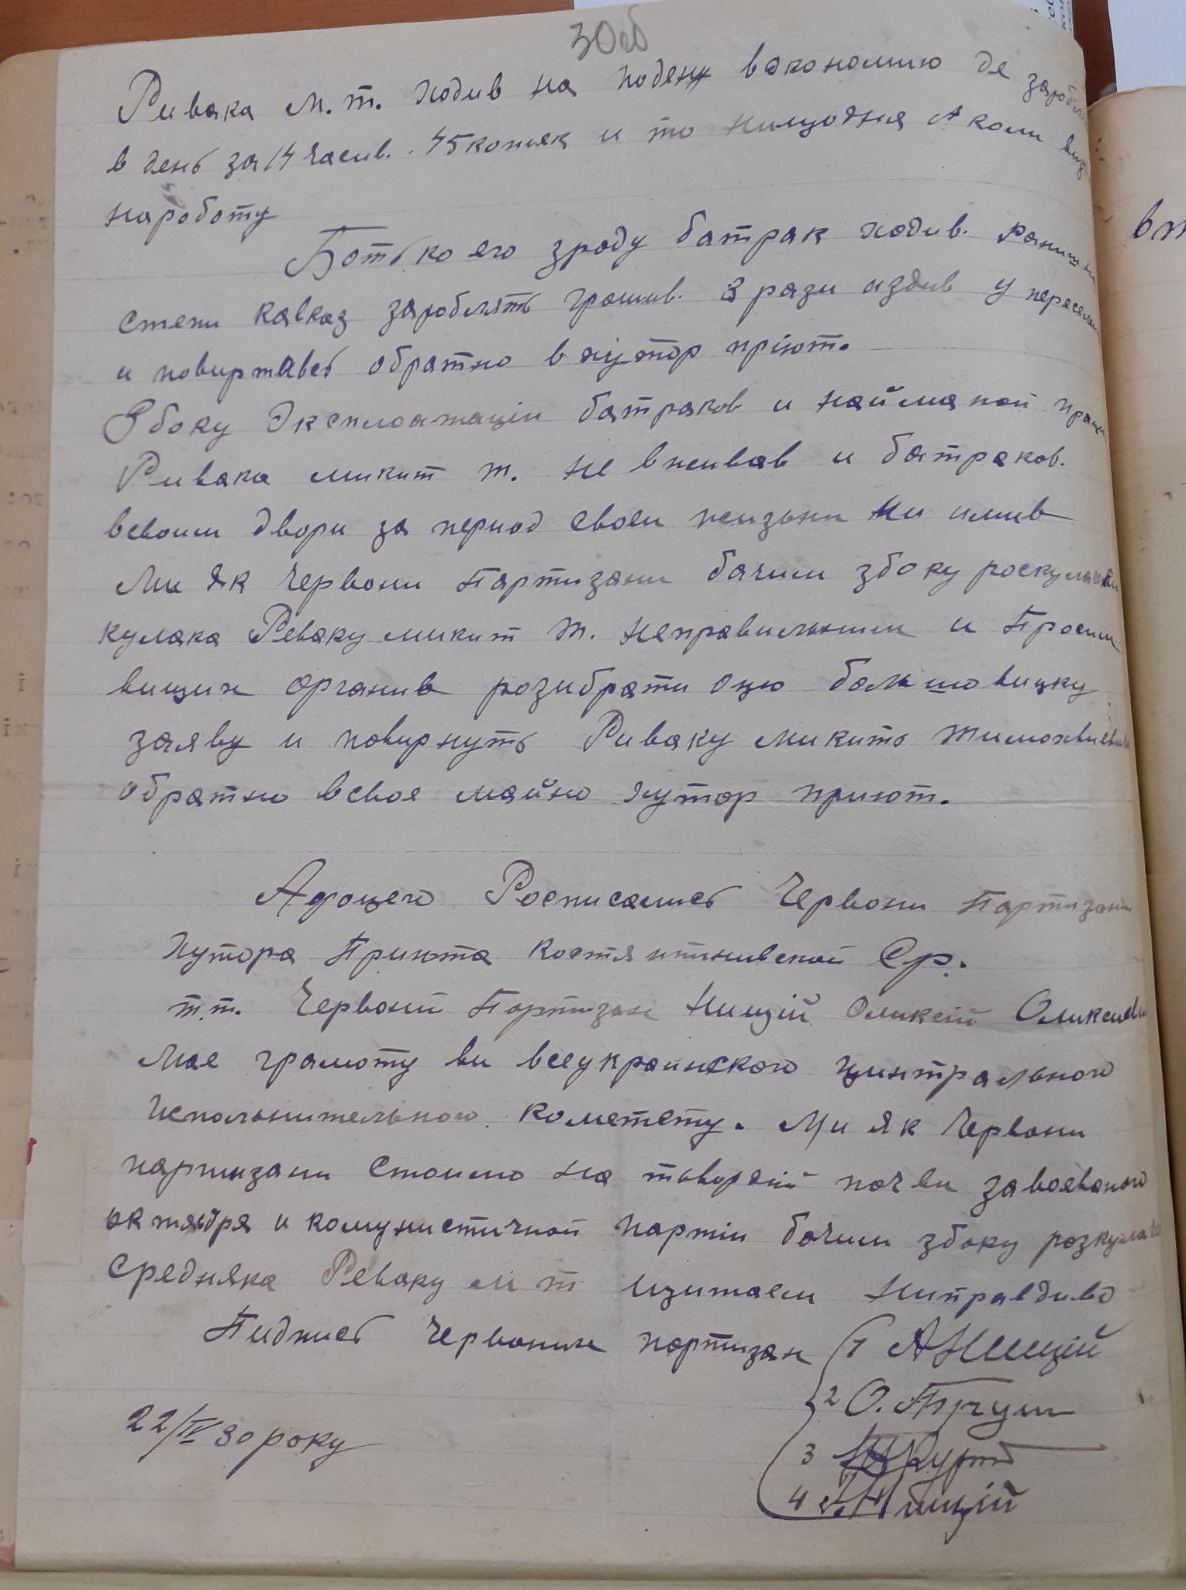 30об
Ривака М.т. ходив на поденж вэкономию де заробл
в день за 14 часив. 45 копияк и то нищодня А коли
нароботу
Ботько его зроду батрак ходив. ранише
степи кавказ зароблять грошив. 3 рази издив у пересел
и повиртавсь обратно в хутор пріют.
Збоку Эксплоатаціи батраков и найманой праци
Ривака микит т. не вживав и батраков.
всвоим двори за период своеи жизьни ни имив
Ми як Червони Партизани бачим збоку роскулачи
кулака Реваку микит т. неправильним и Просим
вищих органив розибрати оцю большовицку
заяву и повирнуть Риваку микить Тимохвиевич
обратно всвое майно хутор приют.
Адоцего Росписались Червони Партизани
хутора Приюта костянтинивской Ср.
т.т. Червоний Портизан Нищій Оликсій Оликсиев
мае грамоту ви всеукраинского центрального
исполнительного кометету. Ми як Червони
партизани стоимо на твордій почви завоеваного
октября и комунистичной партіи бачим збоку розкулач
средняка Реваку м т щитаем ниправдиво
Пидпись Червоних портизан 1 АНищій
2 О.
3
4 Нищій
22/IV 30 року
вп